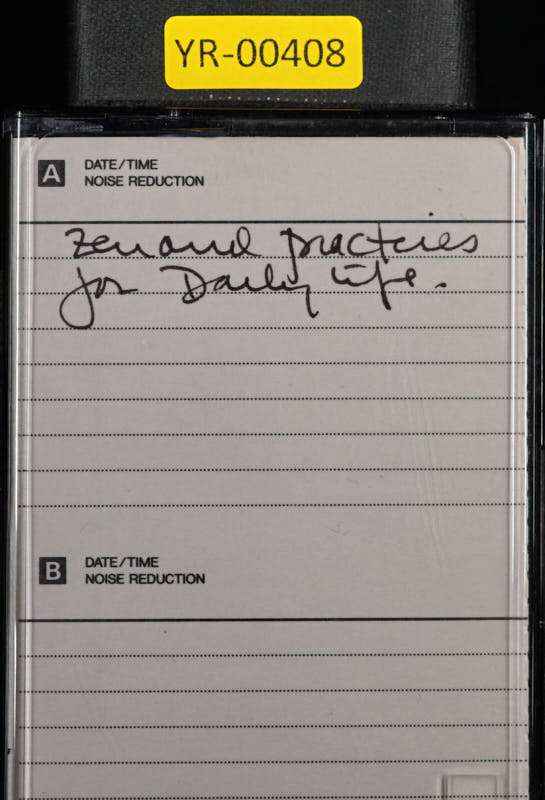 YR-00408
A DATE/TIME
NOISE REDUCTION
Zen and practices
for Daily life.
B DATE/TIME
NOISE REDUCTION